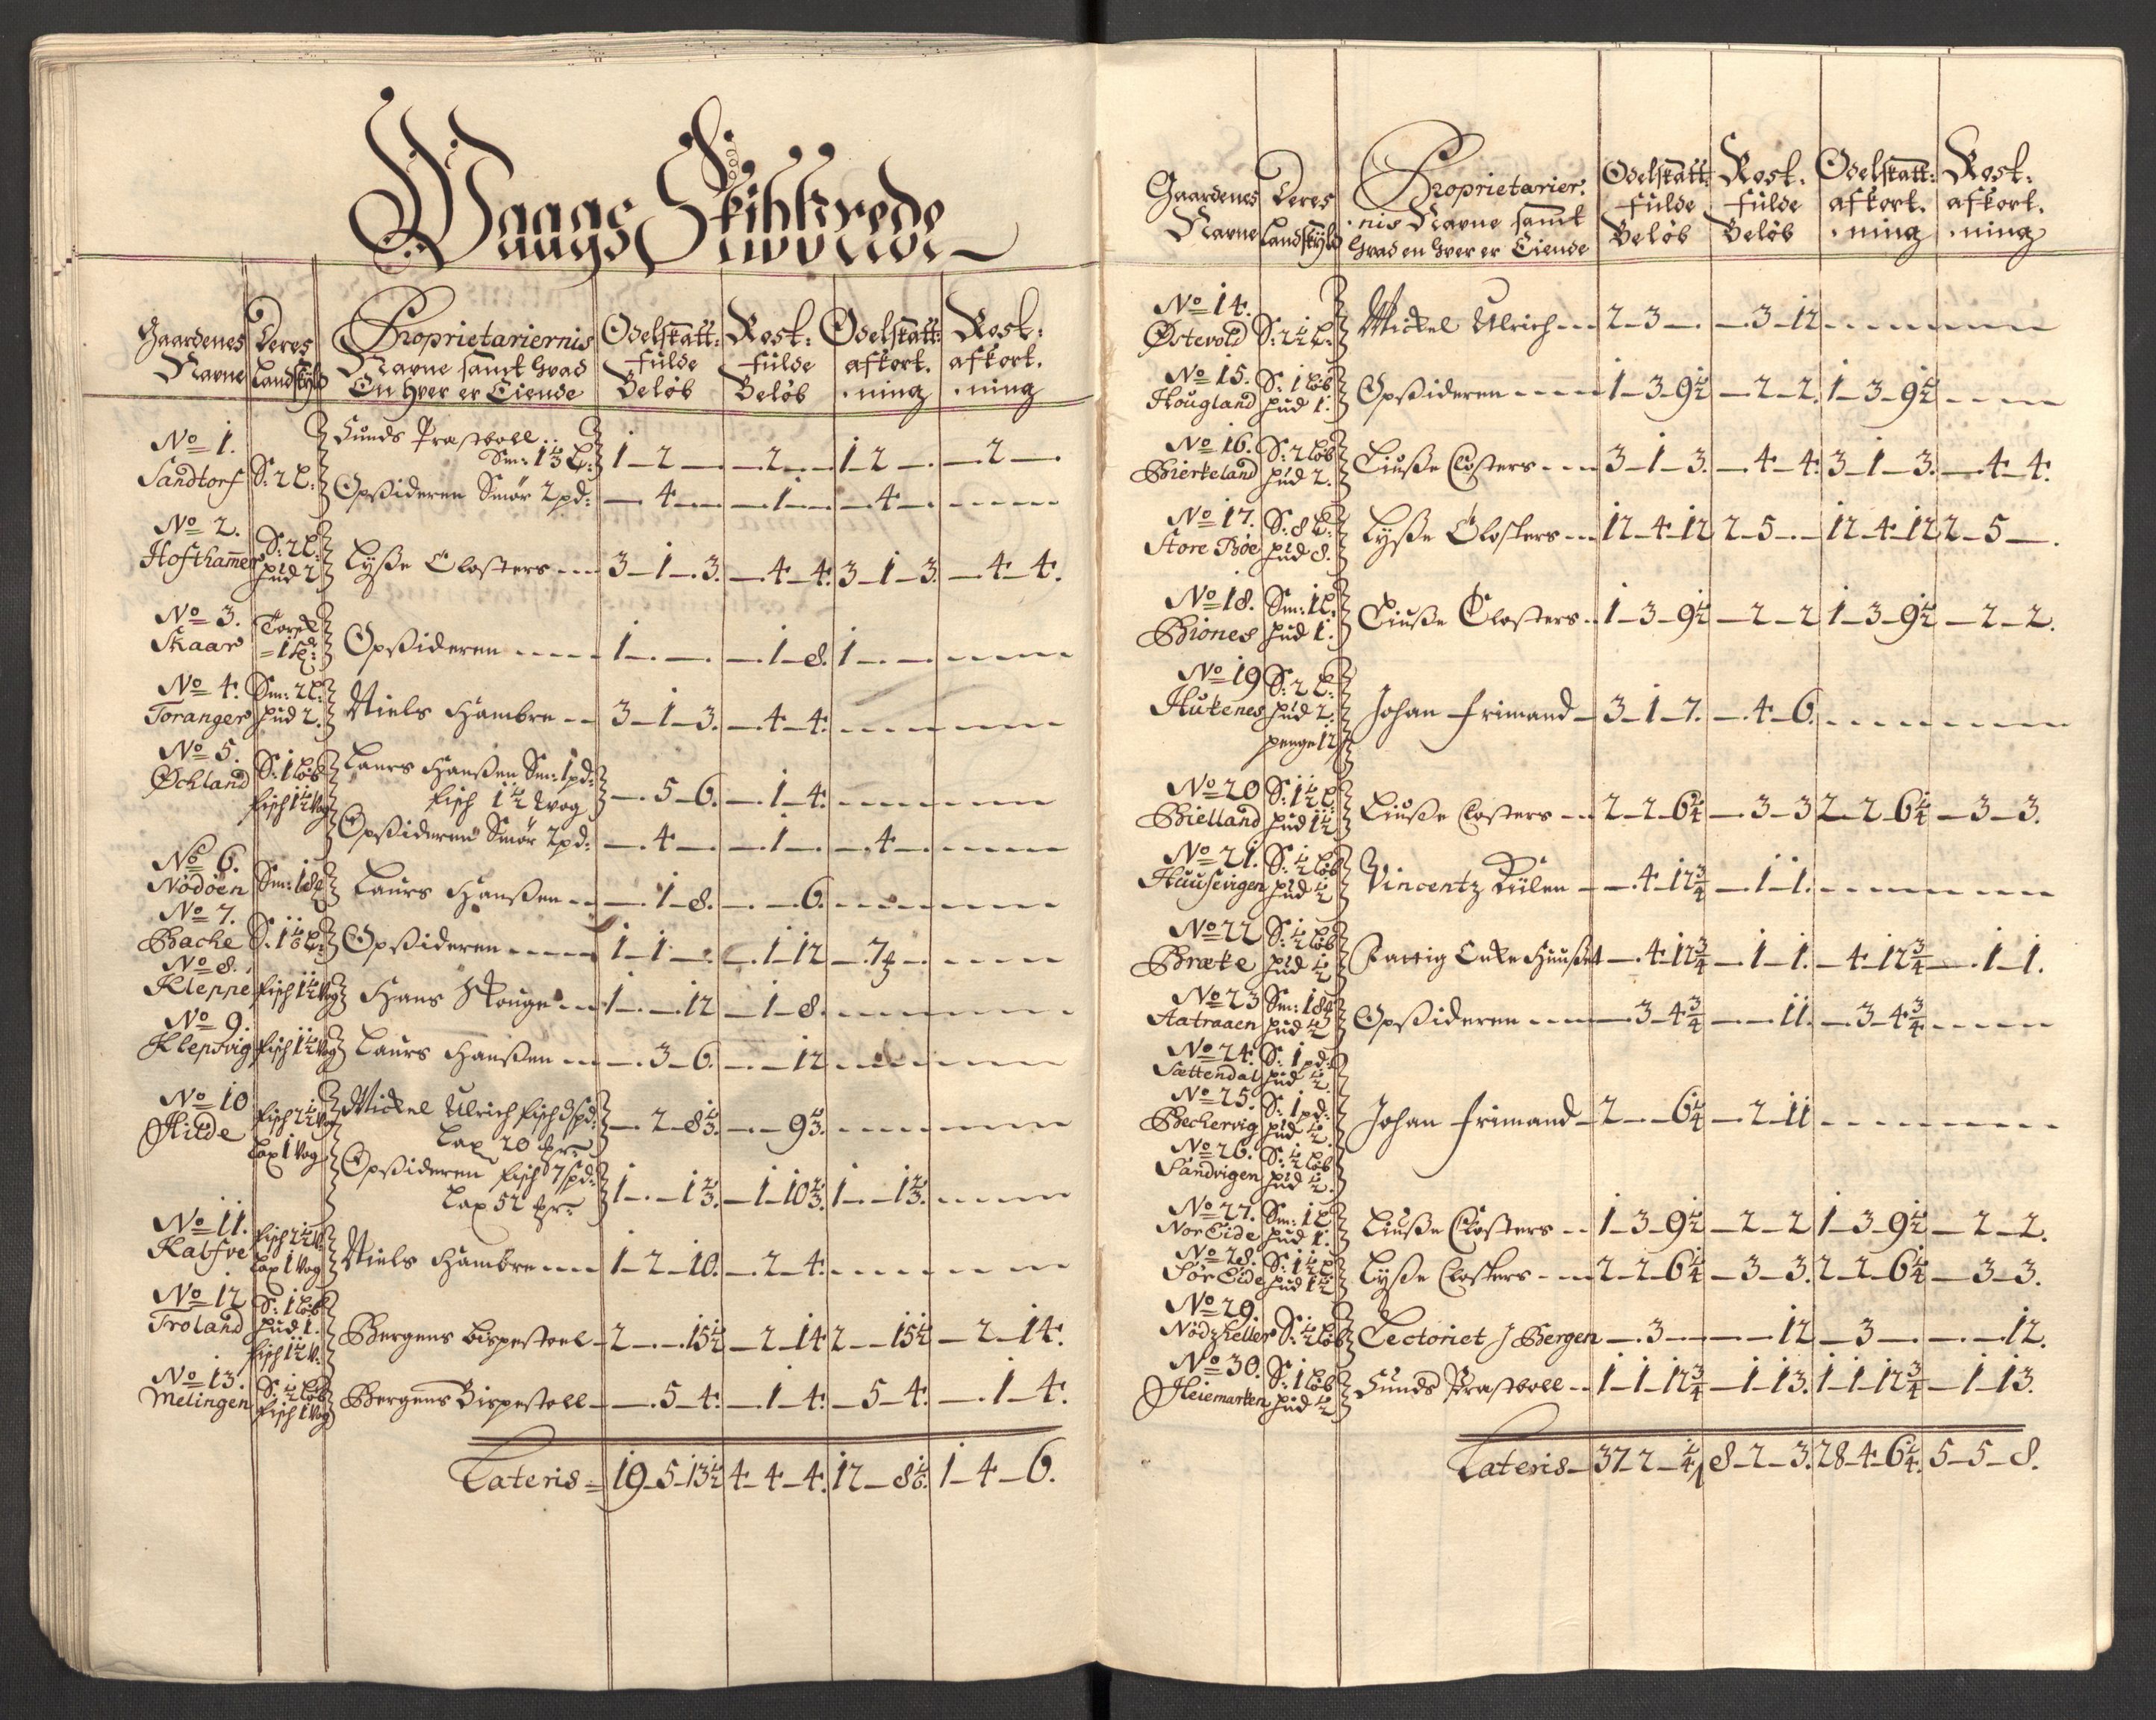 Waags Skibbrede
Gaardenes Navne | Deres Landskÿld | Proprietariernis Navne samt hvad En hver er Eiende | Odelskatt: fulde Beløb | Rost: fulde Beløb | Odelskatt: afkort. ning | Rost: afkort. ning
No 1. Sandtorf | S: 2 L: | Funds Præstboll Sm: 1 1/3 L: | 1-2- | -2- | 1-2- | -2-
Opsideren Smør 2 pd: | -4- | -1- | -4- | ----
No 2. Hofthamer | S: 2 L: hud 2 | Lysse Closters | 3-1-3. | -4-4. | 3-1-3. | -4-4.
No 3. Skaar | 1 | Opsideren | 1-- | -1-8. | 1-- | ----
No 4. Toranger | Sm: 2 L: hud 2. | Niels Hambre | 3-1-3. | -4-4. | ---- | ----
No 5. Øchland | S: 1 Løb fisch 1 1/2 Vog | Laurs Hanssen Sm: 1 pd: fisch 1 1/2 Vog | -5-6. | -1-4. | ---- | ----
Opsideren Smør 2 pd: | -4- | -1- | -4- | ----
No 6. Nödöen | Sm: | Laurs Hanssen | -1-8. | --6. | ---- | ----
No 7. Bache | S: | Opsideren | 1-1- | -1-12 | | ----
No 8. Kleppe | fisch 1 1/2 Vog | Hans Skouge | 1--12 | -1-8. | ---- | ----
No 9. Klepsvig | fisch 1 1/2 Vog | Laurs Hanssen | -3-6. | --12 | ---- | ----
No 10 Hilde | fisch 2 1/2 Vog Lax 1 Vog | Mickel Ulrich fisch Lax 20 | -2-8 1/3. | --9 1/3. | ---- | ----
Opsideren fisch 7 spd: Lax 52 | 1--1 2/3. | -1-10 2/3. | 1--1 2/3. | ----
No 11. Kalfve | fisch 2 1/2 V: Lax 1 Vog | Niels Hambre | 1-2-10. | -2-4. | ---- | ----
No 12 Troland | S: 1 Løb hud 1. fisch 1 1/2 V: | Bergens Bispestoel | 2--15 1/2 | -2-14 | 2--15 1/2 | -2-14.
No 13. Melingen | S: 1/2 Løb fisch 1 Vog | Bergens Bispestoll | -5-4. | -1-4. | -5-4. | -1-4.
Lateris | 19-5-13 1/2 | 4-4-4. | 12--8 1/6. | 1-4-6.
Gaardenes Navne | Deres Landskÿld | Proprietarier. nis Navne samt hvad en hver er Eiende | Odelskatt: fulde Beløb | Rost. fulde Beløb | Odelskatt: afkort. ning | Rost: afkort. ning
No 14. Østevold | S: 2 1/2 L: | Mickel Ulrich | 2-3- | -3-12 | ---- | ----
No 15. Hougland | S: 1 Løb hud 1. | Opsideren | 1-3-9 1/2 | -2-2. | 1-3-9 1/2 | ----
No 16. Bierkeland | S: 2 Løb hud 2. | Liusse Closters | 3-1-3. | -4-4. | 3-1-3. | -4-4.
No 17. Store Bøe | S: 8 L: hud 8. | Lysse Closters | 12-4-12 | 2-5- | 12-4-12 | 2-5-
No 18. Biones | Sm: 1 L: hud 1. | Liusse Closters | 1-3-9 1/2 | -2-2 | 1-3-9 1/2 | -2-2.
No 19 Hukenes | S: 2 L: hud 2. penge 12 | Johan frimand | 3-1-7. | -4-6. | ---- | ----
No 20 Bielland | S: 1 1/2 L hud 1 1/2 | Liusse Closters | 2-2-6 1/4 | -3-3 | 2-2-6 1/4 | -3-3.
No 21. Huusevigen | S: 1/2 Løb hud 1/2 | Vincentz | -4-12 3/4 | -1-1. | ---- | ----
No 22 Bræke | S: 1/2 Løb hud 1/2 | Fattig Enke Huusset | -4-12 3/4 | -1-1. | -4-12 3/4 | -1-1.
No 23 Aatraaen | Sm: hud 1/2 | Opsideren | -3-4 3/4 | --11. | -3-4 3/4 | ----
No 24. Sættendal | S: 1 pd: hud 1/2
No 25. Bechervig | S: 1 pd: hud 1/2. | Johan frimand | 2--6 1/4 | -2-11 | ---- | ----
No 26. Sandvigen | S: 1/2 Løb hud 1/2.
No 27. Nor Eide | Sm: 1 L hud 1. | Liusse Closters | 1-3-9 1/2 | -2-2 | 1-3-9 1/2 | -2-2.
No 28. Sør Eide | S: 1 1/2 L hud 1 1/2 | Lysse Closters | 2-2-6 1/4 | -3-3. | 2-2-6 1/4 | -3-3.
No 29. Nödzkeller | S: 1/2 Løb | Lectoriet J Bergen | -3- | --12 | -3- | --12.
No 30. Heiemarken | S: 1 Løb hud 1/2 | Funds Præstboll | 1-1-12 3/4 | -1-13. | 1-1-12 3/4 | -1-13.
Lateris | 37-2-1/4 | 8-2-3. | 28-4-6 1/4. | 5-5-8.